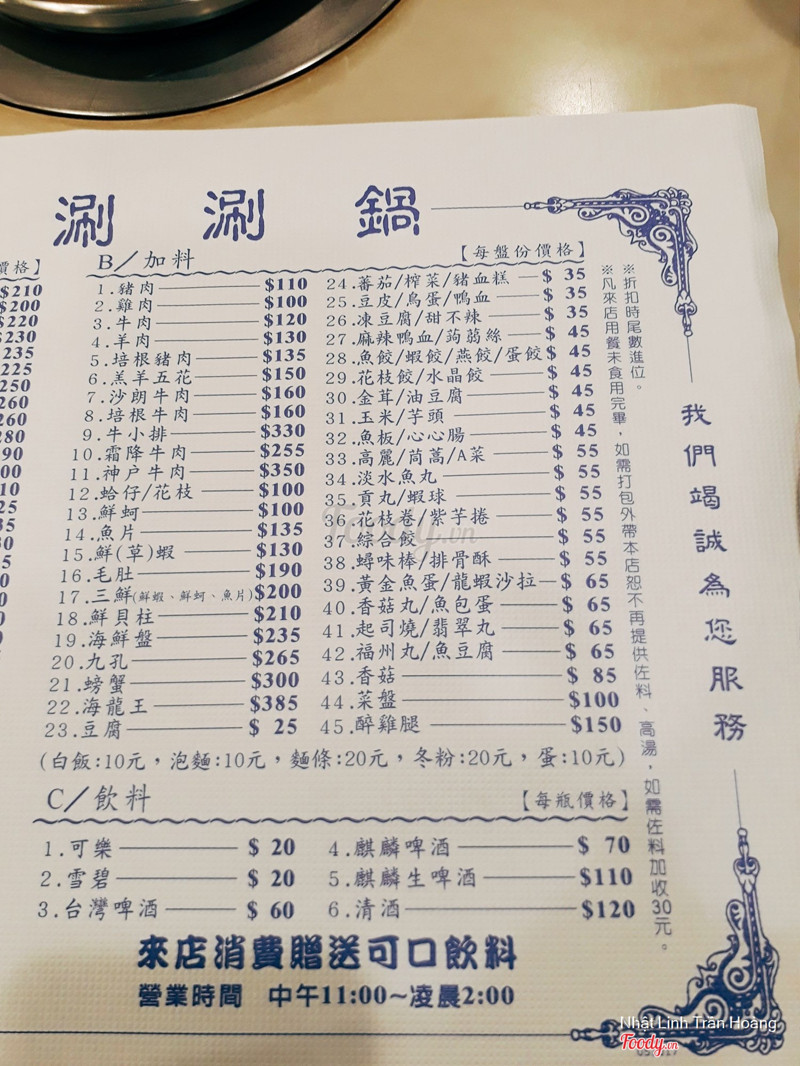 涮涮鍋
價格】
$210
$200
$220
$230
235
225
250
260
260
280
B/加料 【每盤份價格】
1.豬肉 $110
2.雞肉 $100
3.牛肉 $120
4.羊肉 $130
5.培根豬肉 $135
6.羔羊五花 $150
7.沙朗牛肉 $160
8.培根牛肉 $160
9.牛小排 $330
10.霜降牛肉 $255
11.神户牛肉 $350
12.蛤仔/花枝 $100
13.鮮蚵 $100
14.魚片 $135
15.鮮(草)蝦 $130
16.毛肚 $190
17.三鮮(鮮蝦、鮮蚵、魚片) $200
18.鮮貝柱 $210
19.海鮮盤 $235
20.九孔 $265
21.螃蟹 $300
22.海龍王 $385
23.豆腐 $ 25
24.蕃茄/榨菜/豬血糕 $ 35
25.豆皮/鳥蛋/鴨血 $ 35
26.凍豆腐/甜不辣 $ 35
27.麻辣鴨血/蒟蒻絲 $ 45
28.魚餃/蝦餃/燕餃/蛋餃 $ 45
29.花枝餃/水晶餃 $ 45
30.金茸/油豆腐 $ 45
31.玉米/芋頭 $ 45
32.魚板/心心腸 $ 45
33.高麗/茼蒿/A菜 $ 55
34.淡水魚丸 $ 55
35.貢丸/蝦球 $ 55
36.花枝卷/紫芋捲 $ 55
37.綜合餃 $ 55
38.蟳味棒/排骨酥 $ 55
39.黃金魚蛋/龍蝦沙拉 $ 65
40.香菇丸/魚包蛋 $ 65
41.起司燒/翡翠丸 $ 65
42.福州丸/魚豆腐 $ 65
43.香菇 $ 85
44.菜盤 $100
45.醉雞腿 $150
(白飯:10元，泡麵:10元，麵條:20元，冬粉:20元，蛋:10元)
C/飲料 【每瓶價格】
1.可樂 $ 20
2.雪碧 $ 20
3.台灣啤酒 $ 60
4.麒麟啤酒 $ 70
5.麒麟生啤酒 $110
6.清酒 $120
來店消費贈送可口飲料
營業時間 中午11:00~凌晨2:00
※折扣時尾數進位。
※凡來店用餐未食用完畢，如需打包外帶本店恕不再提供佐料、高湯，如需佐料加收30元。
我們竭誠為您服務
Foody.vn
Nhật Linh Trần Hoàng
Foody.vn